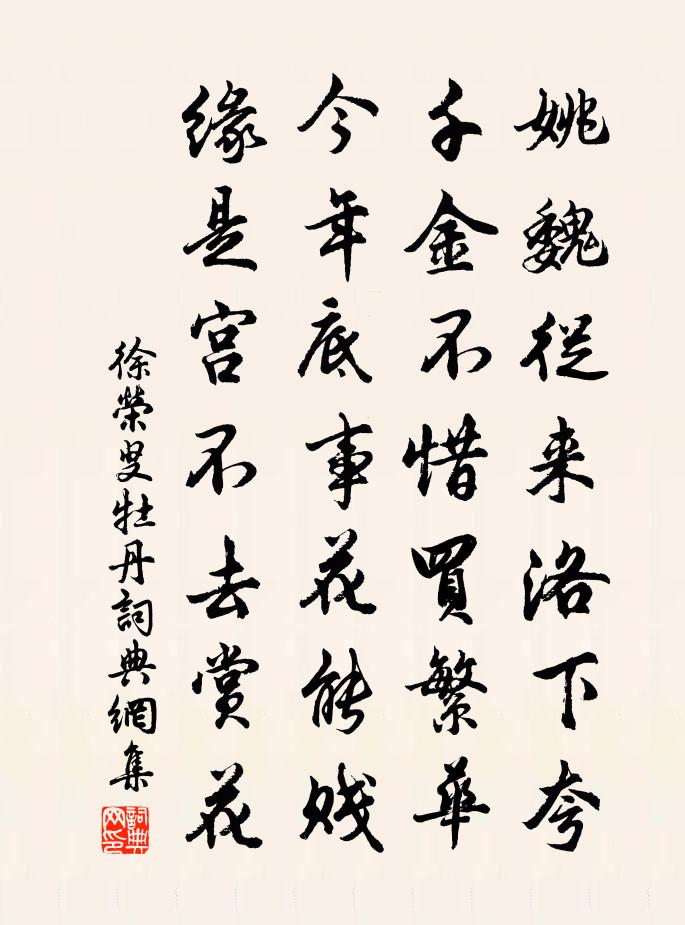 姚魏從来洛下夸
千金不惜買繁華
今年底事花能賤
緣是宫不去赏花
徐榮叟牡丹詞典網集
詞典网印